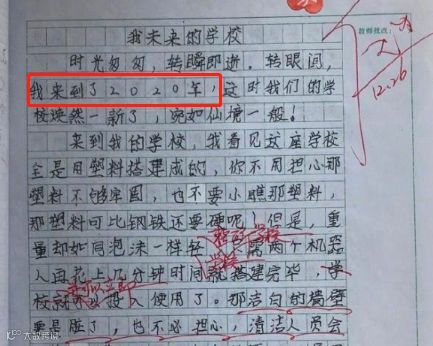 我未来的学校
教师批改:
时光匆匆,转瞬即逝。转眼间,
我来到了2020年,这时我们的学
12.26
校焕然一新了,宛如仙境一般!
来到我的学校,我看见这座学校
全是用塑料搭建成的,你不用担心那
塑料不够牢固,也不要小瞧那塑料,
那塑料可比钢铁还要硬呢!但是,重
量却如同泡沫一样轻
需两个机器
学校
人画花上几分钟时间就搭建完毕,学
校就
投入使用了。那洁白的墙壁
要是脏了,也不必担心,清洁人员会